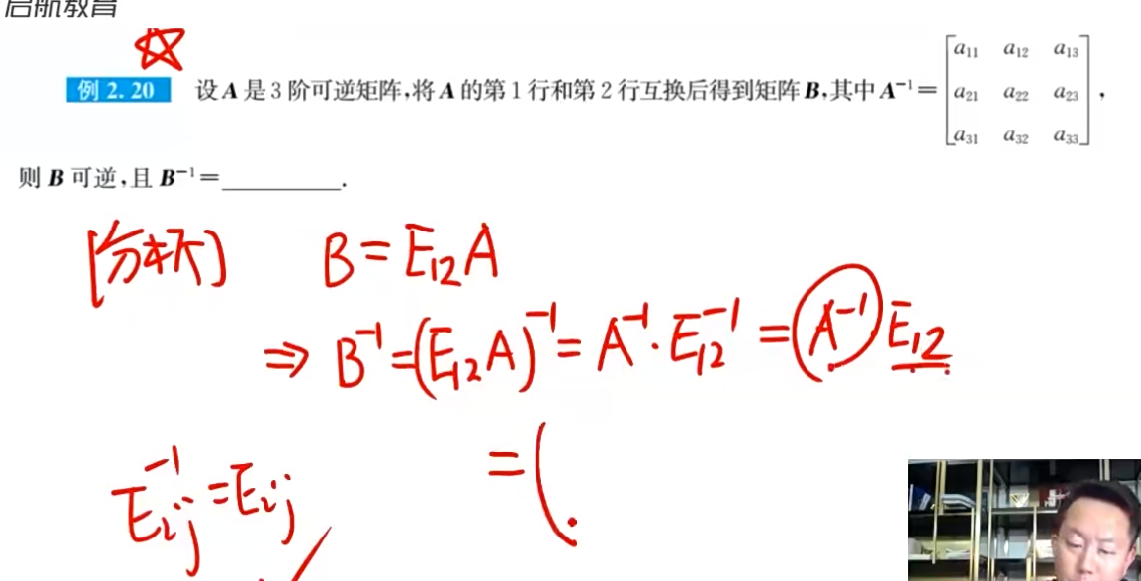 启航教育
例 2.20 设 A 是 3 阶可逆矩阵,将 A 的第 1 行和第 2 行互换后得到矩阵 B,其中 A⁻¹=[a₁₁ a₁₂ a₁₃
a₂₁ a₂₂ a₂₃
a₃₁ a₃₂ a₃₃],
则 B 可逆,且 B⁻¹=__________.
[分析] B=E₁₂A
⇒ B⁻¹=(E₁₂A)⁻¹=A⁻¹·E₁₂⁻¹=A⁻¹E₁₂
=(
Eᵢⱼ⁻¹=Eᵢⱼ